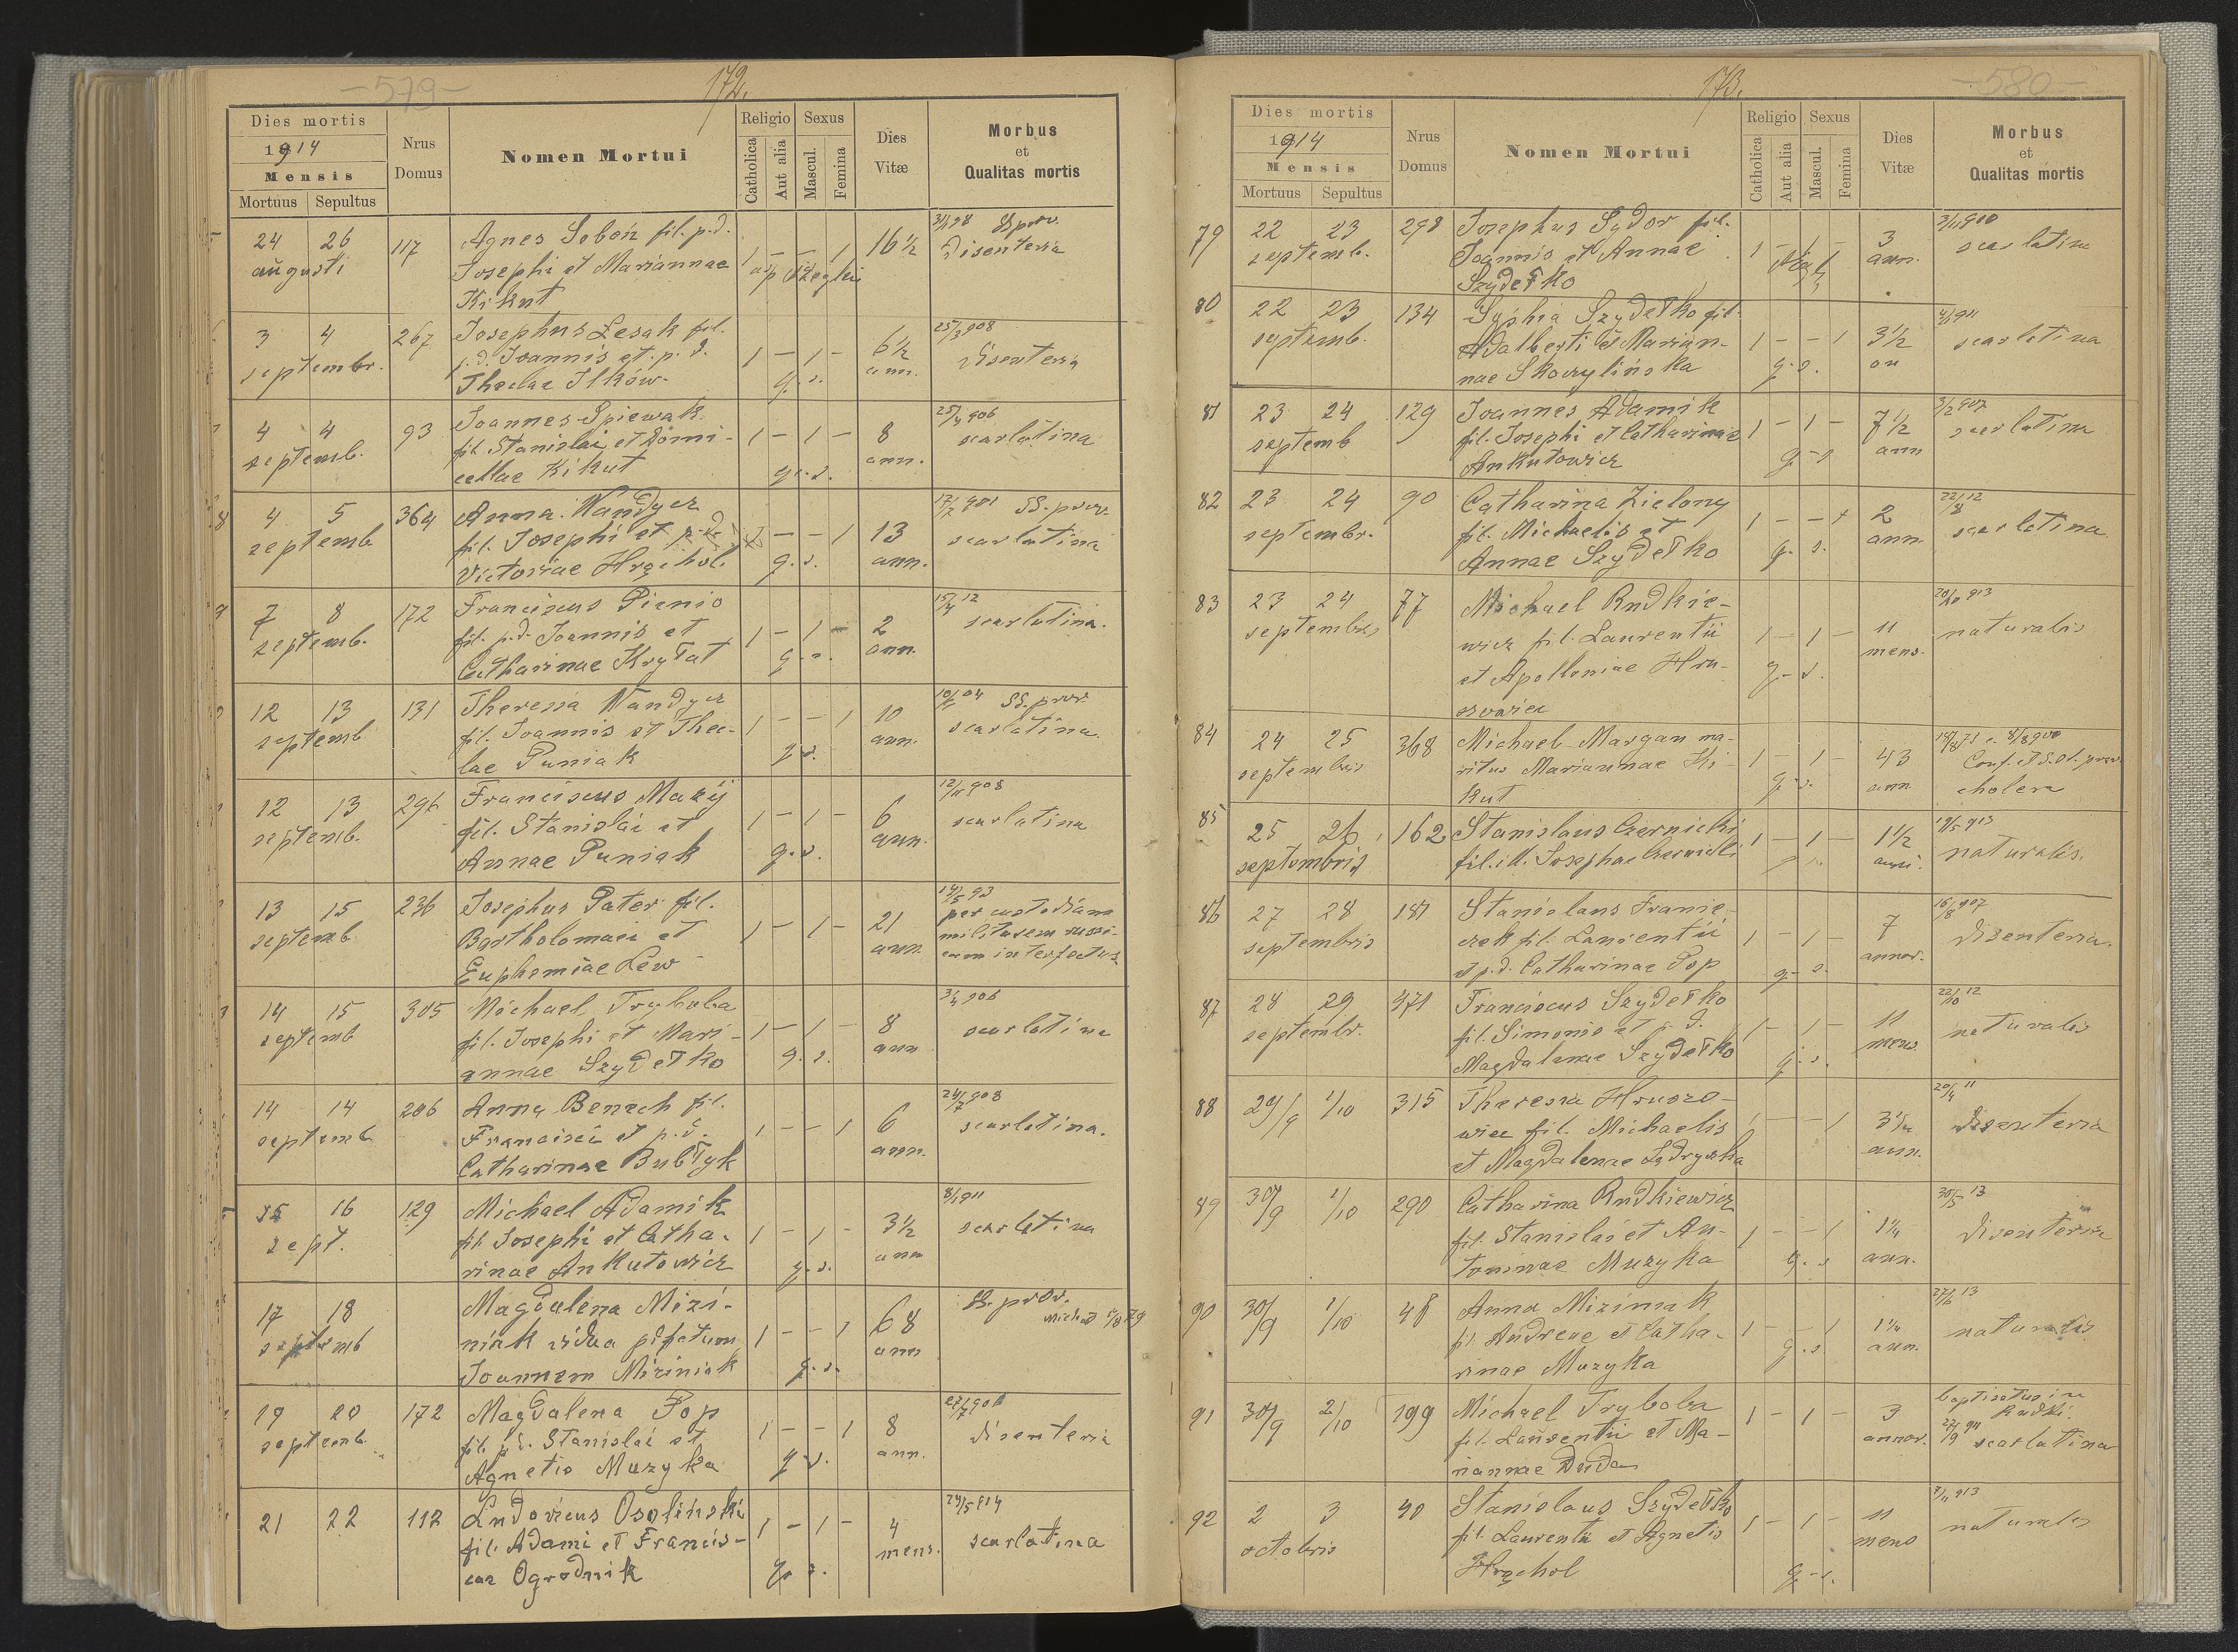 -579-
172.
Dies mortis
1914
Mensis
Mortuus Sepultus
Nrus Domus
Nomen Mortui
Religio
Catholica
Aut alia
Sexus
Mascul.
Femina
Dies Vitæ
Morbus
et
Qualitas mortis
24 26 117 Agnes Soboń fil. p.d. 1 - - 1 16 1/2 SS prov.
augusti Josephi et Mariannae Disenteria
Kikut
3 4 267 Josephus Lesak fil. 25/3 908
septembr. p.d. Joannis et p.d. 1 - 1 - 6 1/2 disenteria
Theclae Ilków g. s. ann.
4 4 93 Joannes Spiewak 25/4 906
septemb. fil. Stanislai et Domi- 1 - 1 - 8 scarlatina
cellae Kikut g. s. ann.
8 4 5 364 Anna Wandycz 901 SS. prov.
septemb. fil. Josephi et 1 - - 1 13 scarlatina
Victoriae Hrachol. g. s. ann.
9 7 8 172 Franciscus Pienio 12
septemb. fil. p.d. Joannis et 1 - 1 - 2 scarlatina.
Catharinae Krytat g. s. ann.
12 13 131 Theresia Wandycz 04 SS. prov.
septemb. fil. Joannis et Thec- 1 - - 1 10 scarlatina
lae Puniak g. s. ann.
12 13 296 Franciscus Mazij 12/11 908
septemb. fil. Stanislai et 1 - 1 - 6 scarlatina
Annae Puniak g. s. ann.
13 15 236 Josephus Pater fil. 93
septemb Bartholomaei et 1 - 1 - 21 per custodiam
Euphemiae Lew ann. militarem russi-
cam interfectus
14 15 305 Michael Tryboba 906
septemb fil. Josephi et Mari- 1 - 1 - 8 scarlatina
annae Szydełko g. s. ann
14 14 206 Anna Benach fil. 24/7 908
septemb. Francisci et p.d. 1 - - 1 6 scarlatina.
Catharinae Bubłyk ann.
15 16 129 Michael Adamik 8/1 911
sept. fil. Josephi et Catha- 1 - 1 - 3 1/2 scarlatina
rinae Ankutowicz g. s. ann
17 18 Magdalena Mizi- SS. prov.
septemb niak vidua p. defectum 1 - - 1 68
Joannem Miziniak g. s. ann
19 20 172 Magdalena Pop 27/7 906
septemb. fil. p.d. Stanislai et 1 - - 1 8 disenteria
Agnetis Muzyka g. s. ann.
21 22 112 Ludovicus Osolinski 24/5 914
fil. Adami et Francis- 1 - 1 - 4 scarlatina
cae Ogrodnik g. s. mens.
-580-
173.
Dies mortis
1914
Mensis
Mortuus Sepultus
Nrus Domus
Nomen Mortui
Religio
Catholica
Aut alia
Sexus
Mascul.
Femina
Dies Vitæ
Morbus
et
Qualitas mortis
79 22 23 298 Josephus Sydor fil. 910
septemb. Joannis et Annae 1 - 1 - 3 scarlatina
Szydełko ann.
80 22 23 134 Sophia Szydełko fil. 911
septemb. Adalberti et Marian- 1 - - 1 3 1/2 scarlatina
nae Skowylińska g. s. an
81 23 24 129 Joannes Adamik 3/2 907
septemb fil. Josephi et Catharinae 1 - 1 - 7 1/2 scarlatina
Ankutowicz g - s ann
82 23 24 90 Catharina Zielony 22/8 12
septembr. fil. Michaelis et 1 - - 1 2 scarlatina
Annae Szydełko g. s. ann.
83 23 24 77 Michael Rudkie- 20/10 913
septembris wicz fil. Laurentii 1 - 1 - 11 naturalis
et Apolloniae Hru- g - s. mens.
szowiec
84 24 25 368 Michael Margan ma- 18/8 71
septembris ritus Mariannae Ki- 1 1 - 43 Conf. et S. Ol. prov.
kut g. s. ann cholera
85 25 26 162 Stanislaus Czernicki 913
septembris fil. ill. Josephae Czernicki 1 - 1 - 1 1/2 naturalis.
86 27 28 181 Stanislaus Franie- 16/8 907
septembris czek fil. Laurentii 1 - 1 - 7 disenteria.
et p.d. Catharinae Pop g. s. annor.
87 28 29 371 Franciscus Szydełko 22/10 12
septembr. fil. Simonis et p.d. 1 - 1 - 11 naturalis
Magdalenae Szydełko g. s. mens
88 29/9 1/10 315 Theresia Hruszo- 20/4 11
wiec fil. Michaelis 1 - - 1 disenteria
et Magdalenae Ladryszka ann.
89 30/9 1/10 290 Catharina Rudkiewicz 30/5 13
fil. Stanislai et An- 1 - - 1 1 1/4 disenteria
toninae Muzyka g. s ann.
90 30/9 1/10 48 Anna Miziniak 13
fil. Andreae et Catha- 1 - - 1 1 1/4 naturalis
rinae Muzyka g. s ann.
91 30/9 2/10 199 Michael Tryboba baptisatus in
fil. Laurentii et Ma- 1 - 1 - 3 Rudki.
riannae Duda annor. 911 scarlatina
92 2 3 40 Stanislaus Szydełko 913
octobris fil. Laurentii et Agnetis 1 - 1 - 11 naturalis
Hrachol g - s. mens